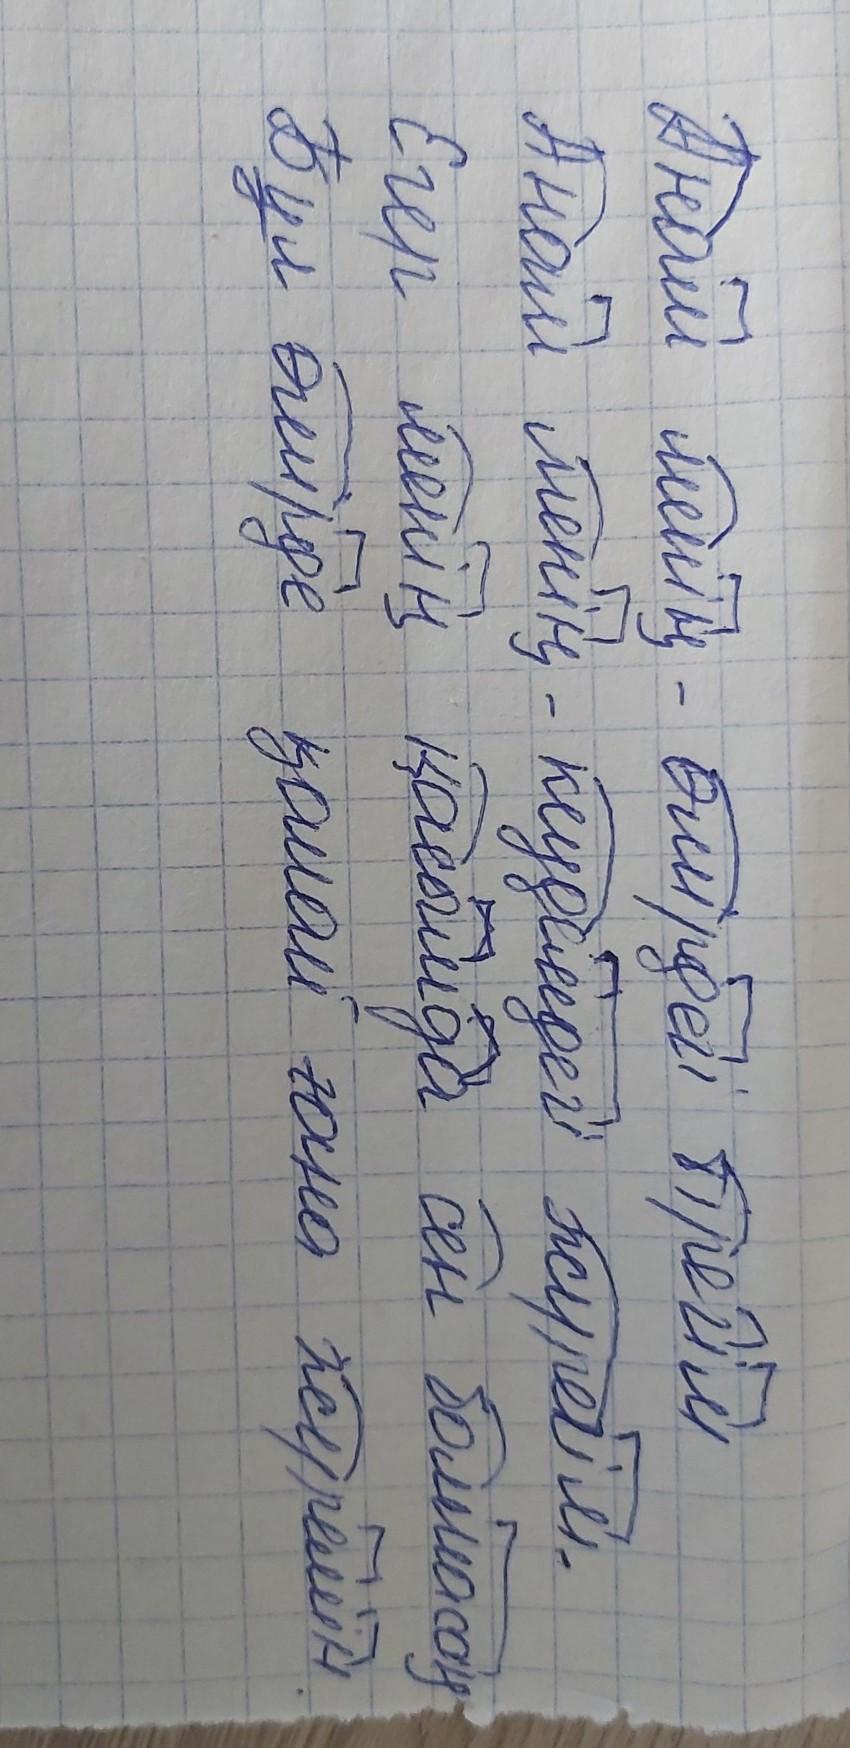 Анам менің - өмірдегі тірегім
Анам менің - кеудемдегі жүрегім.
Егер менің қасымда сен болмасаң
Бұл өмірде қалай ғана жүремін.